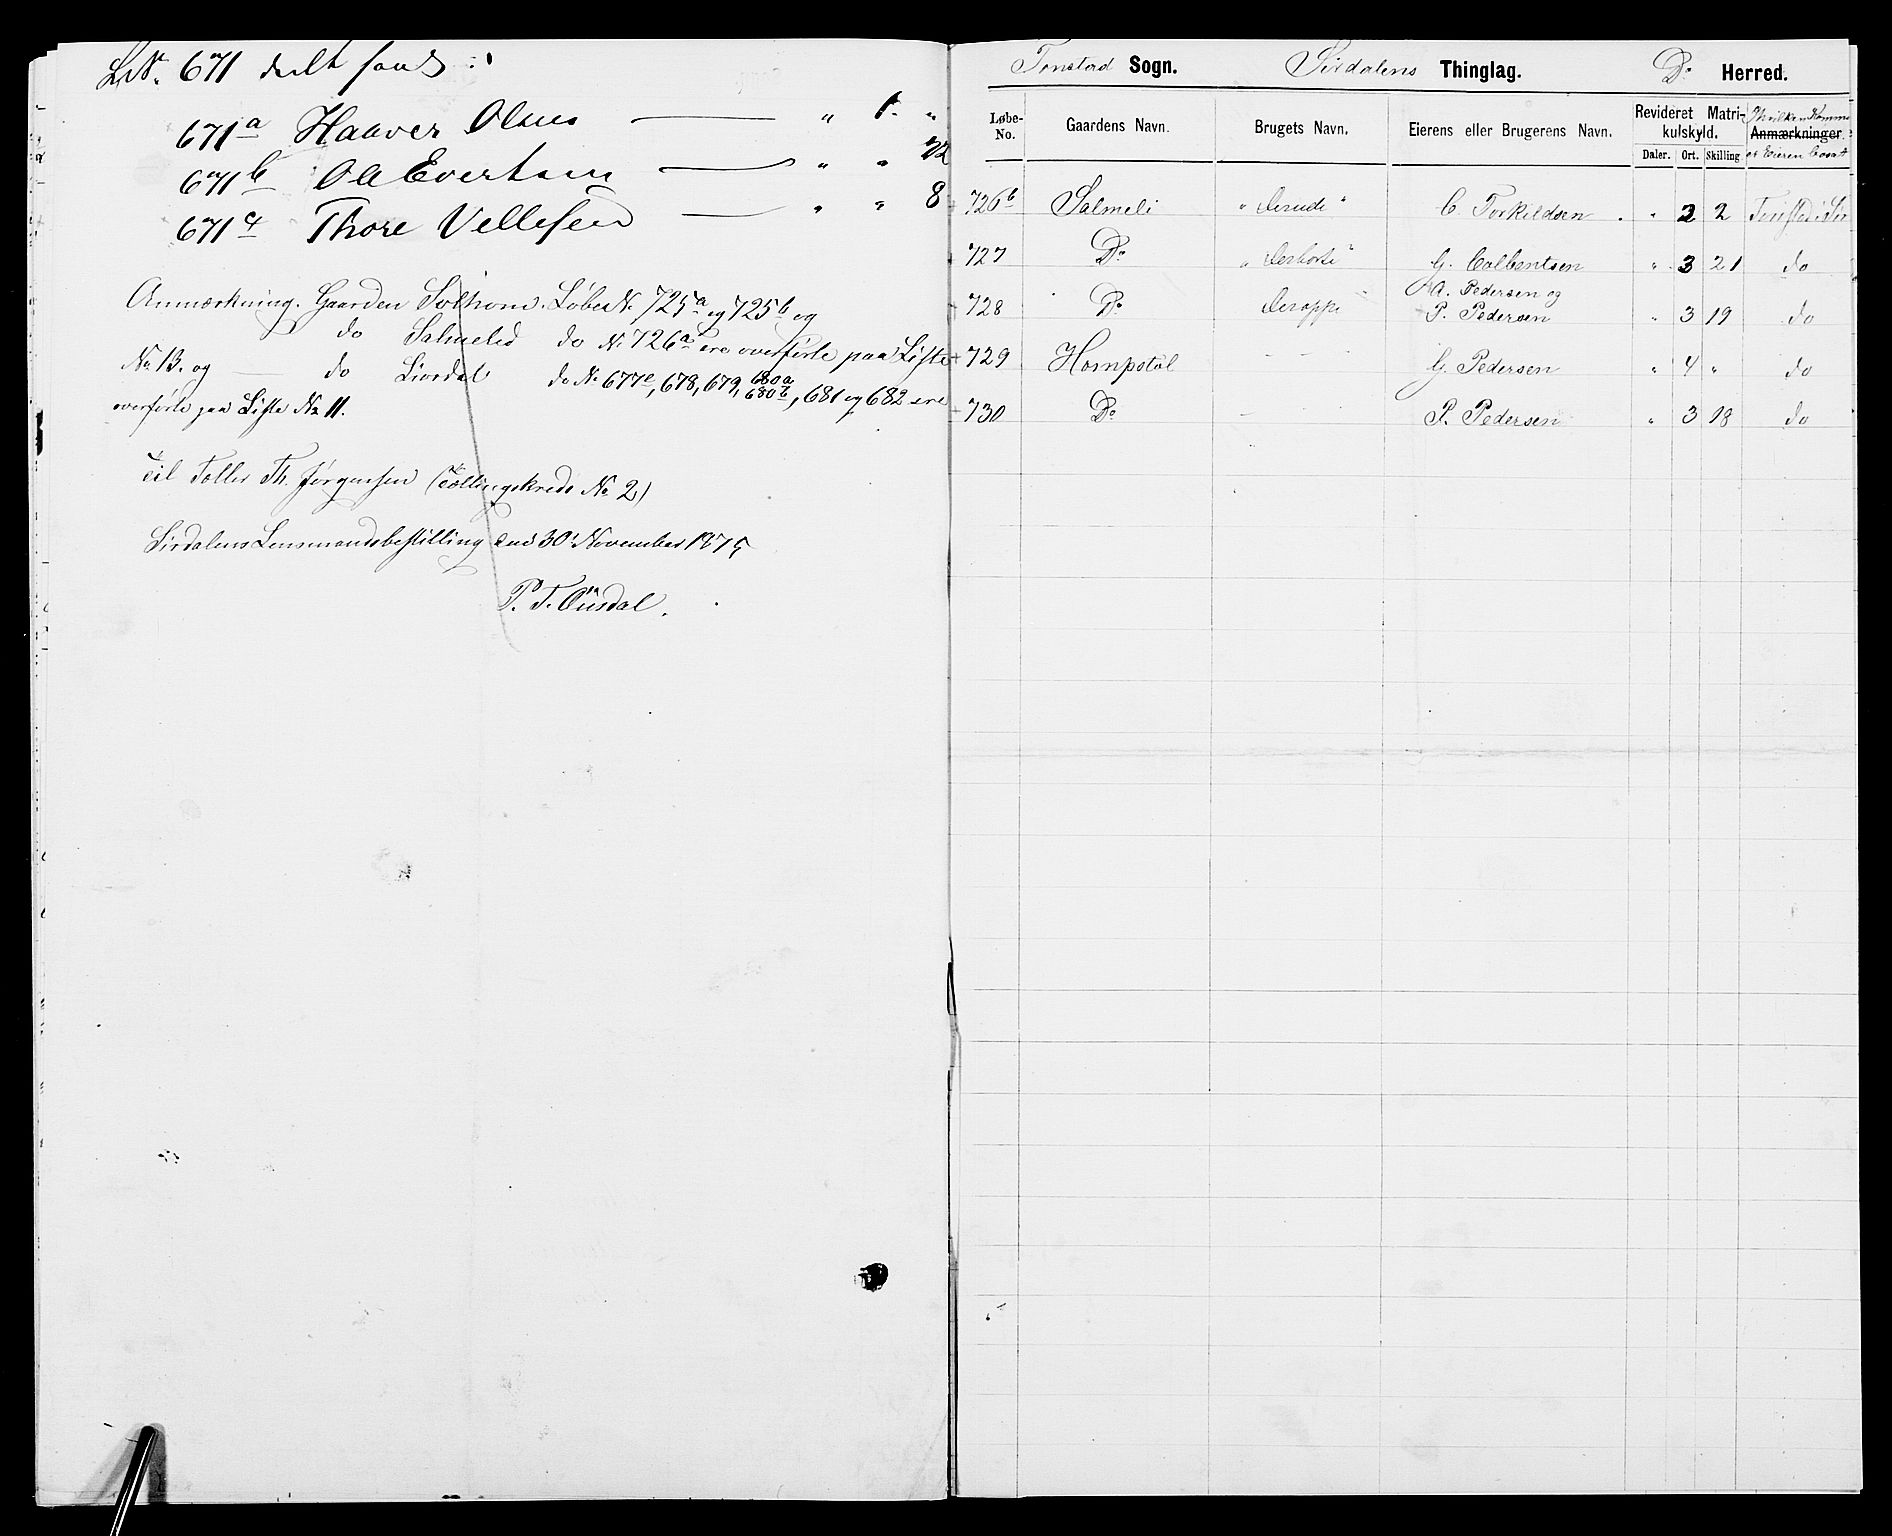 LNo. 671 delt saad :
671a Haaver Olsen — " 1. "
671b Ole Evertsen — " " 22
671c Thore Vellesen — " " 8
Anmærkning. Gaarden Solhom. Løbe No. 725a og 725b og
do Salmelid do No 726a ere overførte paa Liste
No. 13. og — do Liordal do No. 677e, 678, 679, 680a, 680b, 681 og 682 ere
overførte paa Liste No. 11.
Til Tæller Th. Jørgensen (Tællingskreds No. 2)
Sirdalens Lensmandsbestilling den 30. November 1875
P. T. Ousdal.
Tonstad Sogn. Sirdalens Thinglag. Do Herred.
Løbe-No. Gaardens Navn. Brugets Navn. Eierens eller Brugerens Navn. Revideret Matrikulskyld. Anmærkninger.
Daler. Ort. Skilling er Eieren bosat
726b Salmeli " " C. Torkildsen " 2 2 Tonstad i Sir
727 Do " " G. Colbentsen " 3 21 do
728 Do A. Pedersen og P. Pedersen " 3 19 do
729 Hompstøl - - G. Pedersen " 4 " do
730 Do - - P. Pedersen " 3 18 do